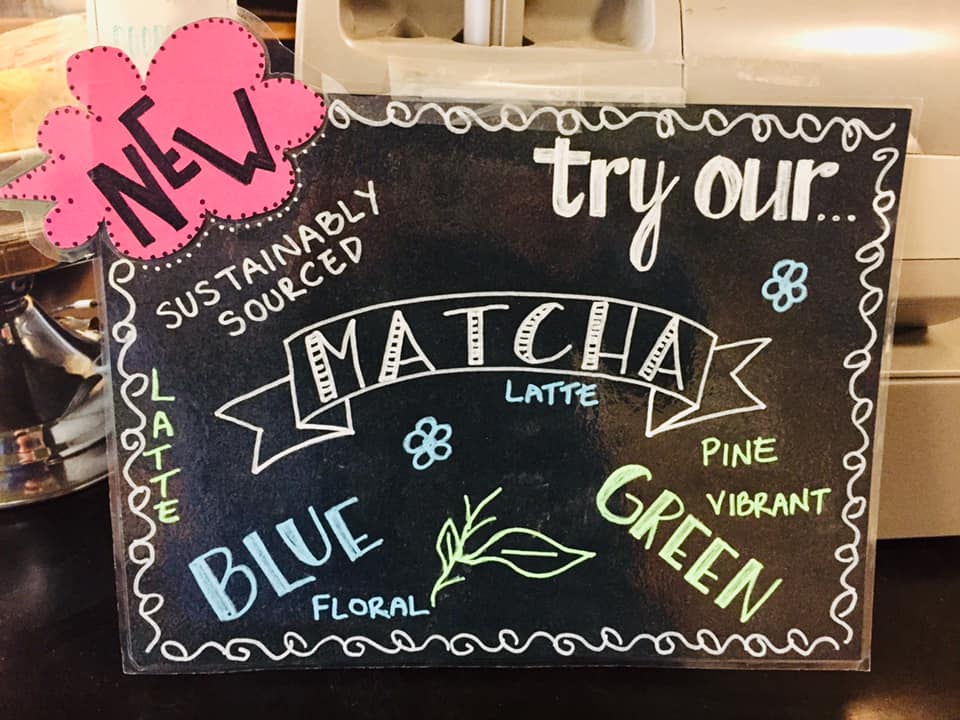 NEW
try our...
SUSTAINABLY
SOURCED
MATCHA
LATTE
LATTE
PINE
VIBRANT
GREEN
BLUE
FLORAL